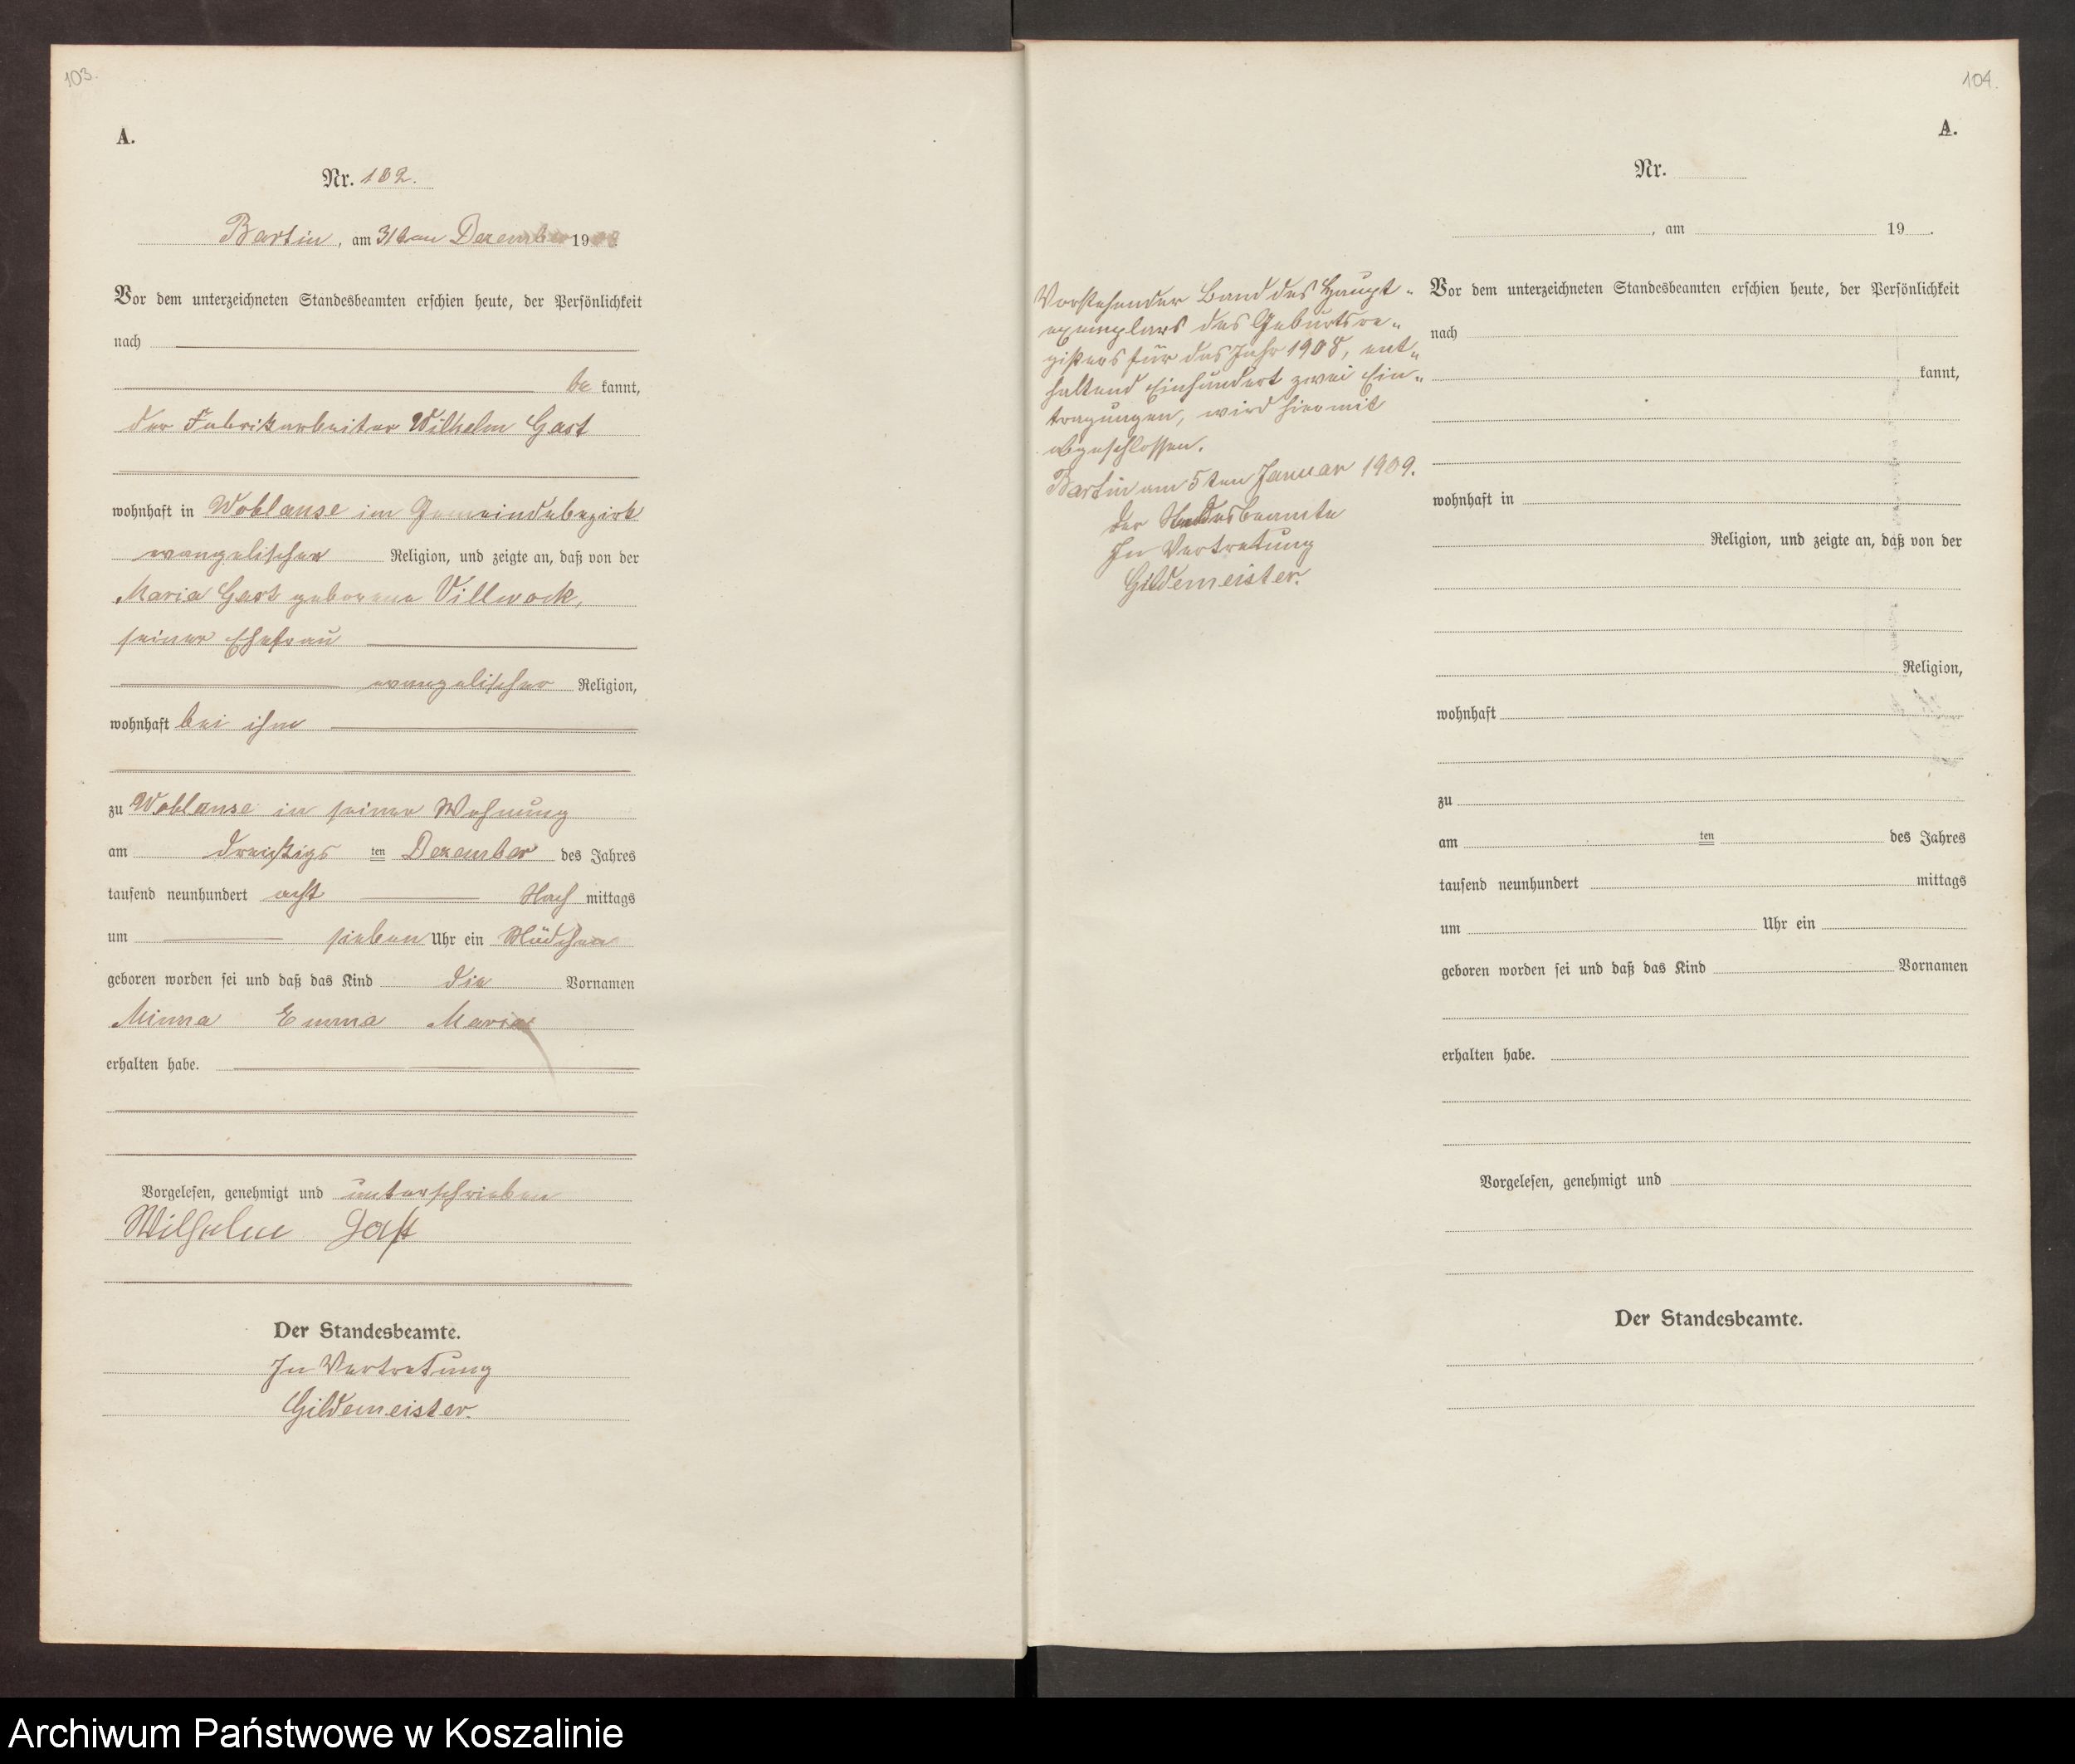 103.
A.
Nr. 102.
Bartin, am 31ten Dezember 1908
Vor dem unterzeichneten Standesbeamten erschien heute, der Persönlichkeit
nach
be kannt,
der Fabrikarbeiter Wilhelm Gast
wohnhaft in Woblanse im Gemeindebezirk
evangelischer Religion, und zeigte an, daß von der
Maria Gast geborene Villwock,
seiner Ehefrau
evangelischer Religion,
wohnhaft bei ihm
zu Woblanse in seiner Wohnung
am dreißigs ten Dezember des Jahres
tausend neunhundert acht Nach mittags
um sieben Uhr ein Mädchen
geboren worden sei und daß das Kind die Vornamen
Minna Emma Maria
erhalten habe.
Vorgelesen, genehmigt und unterschrieben
Wilhelm Gast
Der Standesbeamte.
In Vertretung
Gildemeister.
104.
A.
Nr.
, am 19 .
Vorstehender Band des Haupt-
exemplars des Geburtsre-
gisters für das Jahr 1908, ent-
haltend Einhundert zwei Ein-
tragungen, wird hiermit
abgeschlossen.
Bartin am 5ten Januar 1909.
Der Standesbeamte
In Vertretung
Gildemeister.
Vor dem unterzeichneten Standesbeamten erschien heute, der Persönlichkeit
nach
kannt,
wohnhaft in
Religion, und zeigte an, daß von der
Religion,
wohnhaft
zu
am ten des Jahres
tausend neunhundert mittags
um Uhr ein
geboren worden sei und daß das Kind Vornamen
erhalten habe.
Vorgelesen, genehmigt und
Der Standesbeamte.
Archiwum Państwowe w Koszalinie